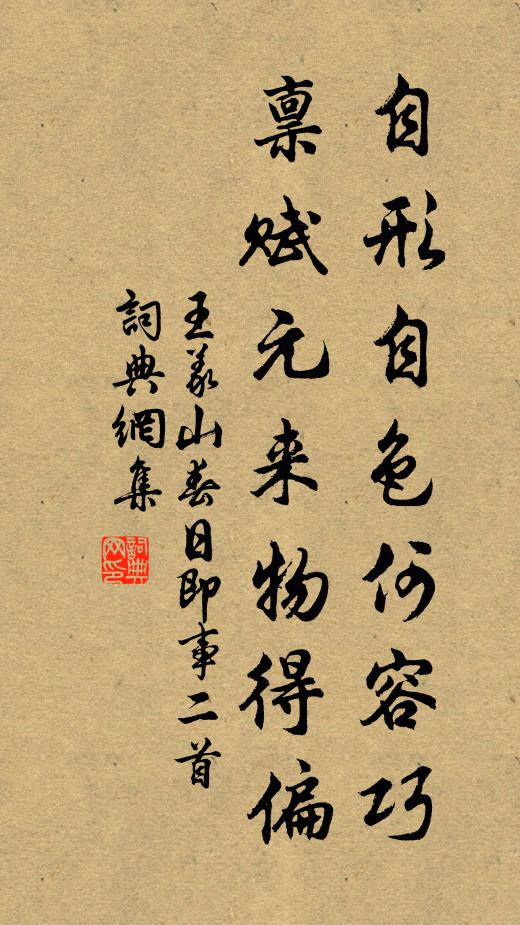 自形自色何容巧
禀赋元来物得偏
王义山春日即事二首
詞典網集
詞典网印